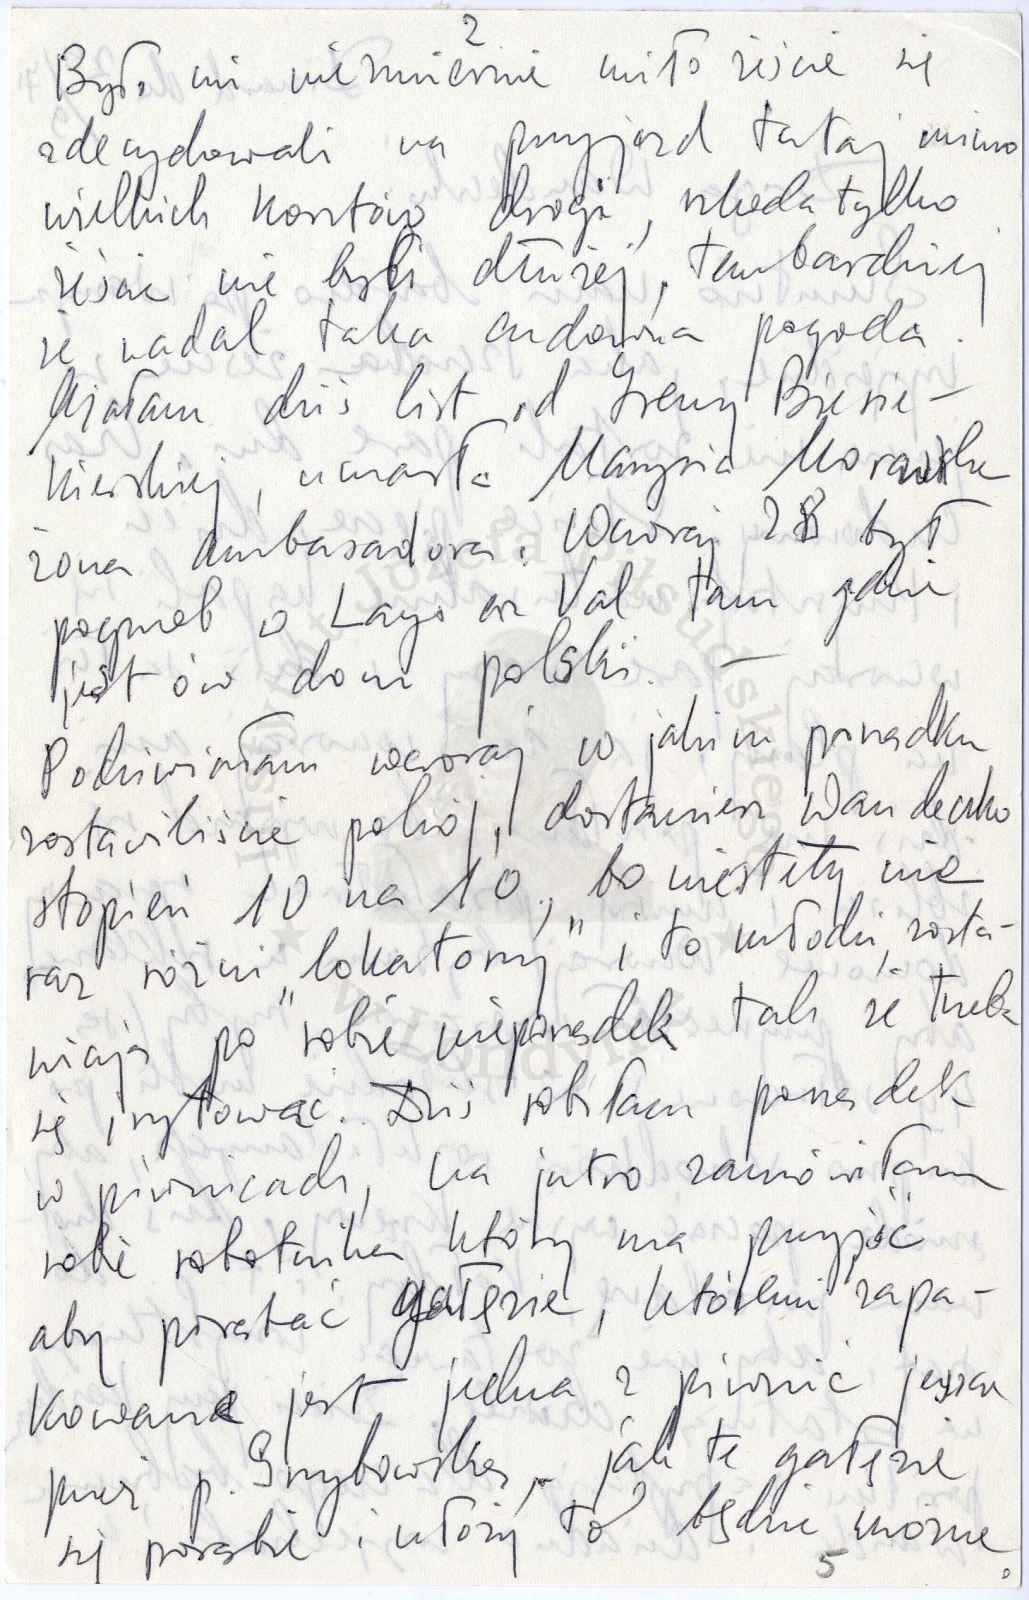 2
Było mi niezmiernie miło żeście się
zdecydowali na przyjazd tutaj mimo
wielkich kosztów drogi, szkoda tylko
żeście nie byli dłużej, tembardziej
że nadal taka cudowna pogoda.
Miałam dziś list od Ireny Biesie-
kierskiej, umarła Marysia Morawska
żona ambasadora. Wczoraj 28 był
pogrzeb w Lago en Val tam gdzie
jest ów dom polski. —
Podziwiałam wczoraj w jakim porządku
zostawiliście pokój, dostaniesz Wandeczko
stopień 10 na 10, bo niestety nie
raz różni „lokatorzy” i to młodzi, zosta-
wiają po sobie nieporządek tak że trzeba
się irytować. Dziś robiłam porządek
w piwnicach, na jutro zamówiłam
sobie robotnika który ma przyjść
aby porąbać gałęzie, któremi zapa-
kowana jest jedna z piwnic jeszcze
przez p. Grzybowską, jak te gałęzie
się porąbie i ułoży to będzie można
5
Instytut Józefa Piłsudskiego
w Londynie